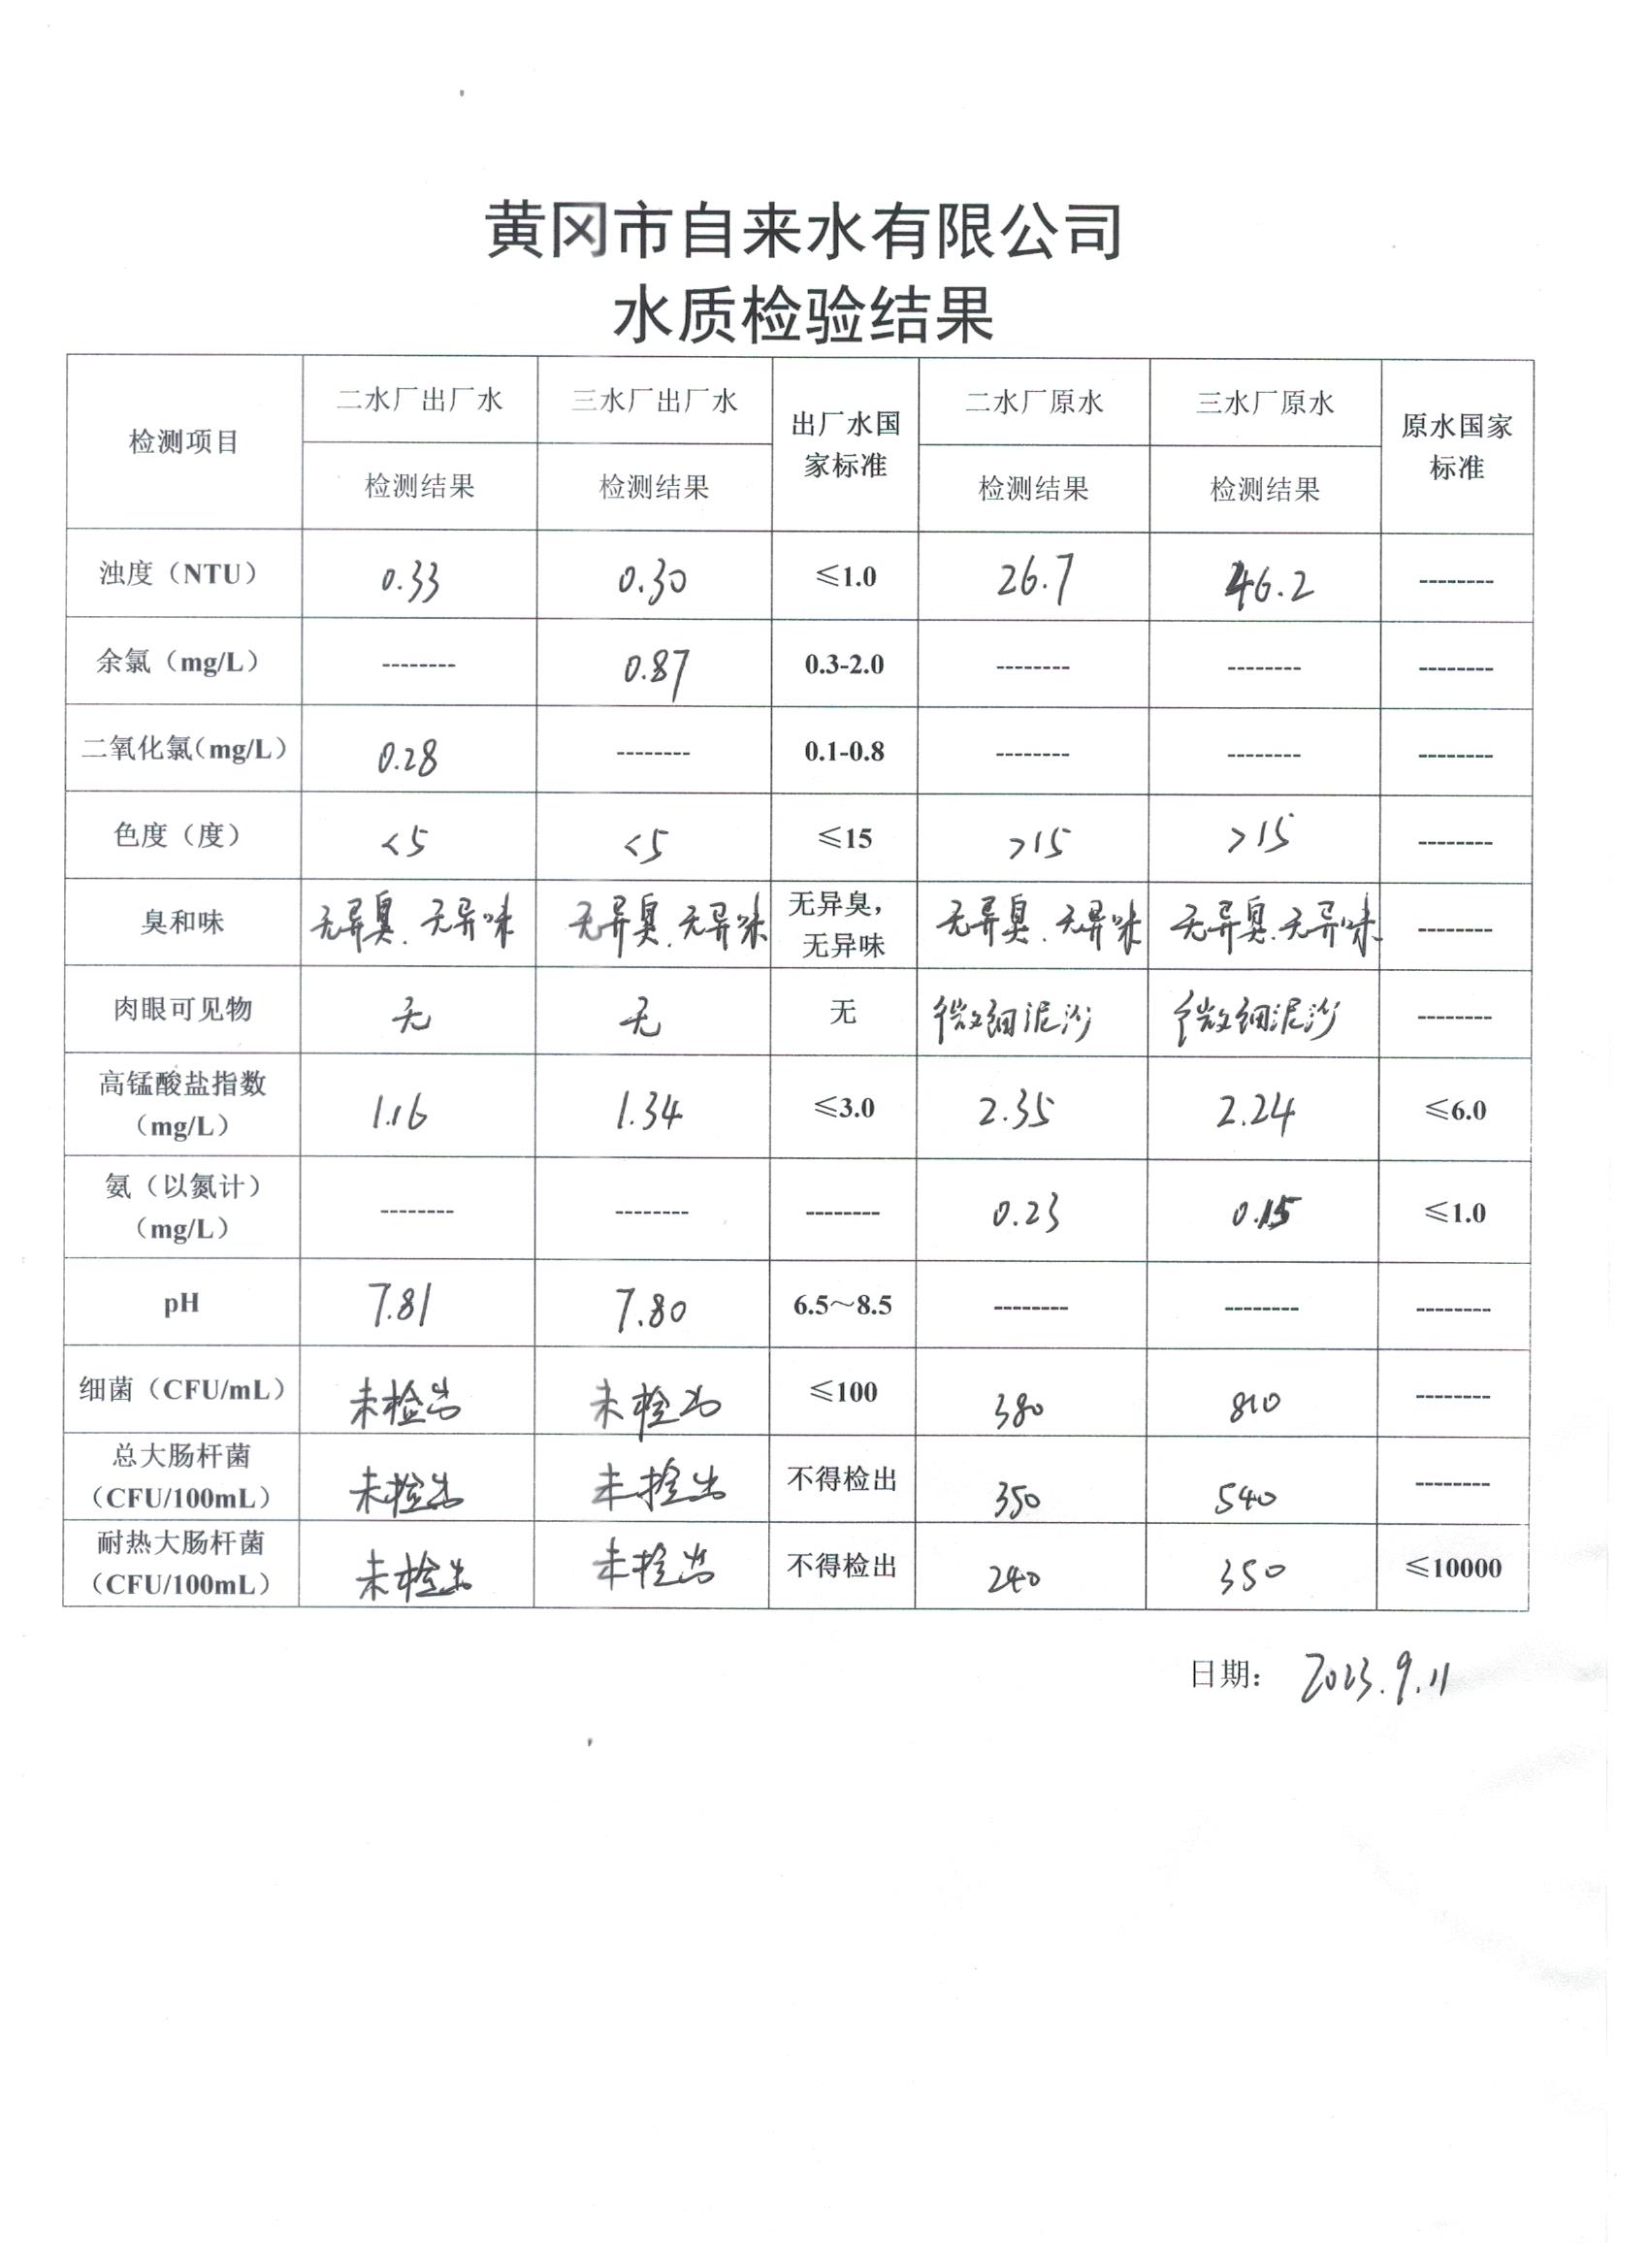 黄冈市自来水有限公司
水质检验结果
检测项目 二水厂出厂水 三水厂出厂水 出厂水国家标准 二水厂原水 三水厂原水 原水国家标准
检测结果 检测结果 检测结果 检测结果
浊度（NTU） 0.33 0.30 ≤1.0 26.7 46.2 --------
余氯（mg/L） -------- 0.87 0.3-2.0 -------- -------- --------
二氧化氯（mg/L） 0.28 -------- 0.1-0.8 -------- -------- --------
色度（度） <5 <5 ≤15 >15 >15 --------
臭和味 无异臭.无异味 无异臭.无异味 无异臭，无异味 无异臭.无异味 无异臭.无异味 --------
肉眼可见物 无 无 无 微细泥沙 微细泥沙 --------
高锰酸盐指数（mg/L） 1.16 1.34 ≤3.0 2.35 2.24 ≤6.0
氨（以氮计）（mg/L） -------- -------- -------- 0.23 0.15 ≤1.0
pH 7.81 7.80 6.5～8.5 -------- -------- --------
细菌（CFU/mL） 未检出 未检出 ≤100 380 810 --------
总大肠杆菌（CFU/100mL） 未检出 未检出 不得检出 350 540 --------
耐热大肠杆菌（CFU/100mL） 未检出 未检出 不得检出 240 350 ≤10000
日期： 2023.9.11